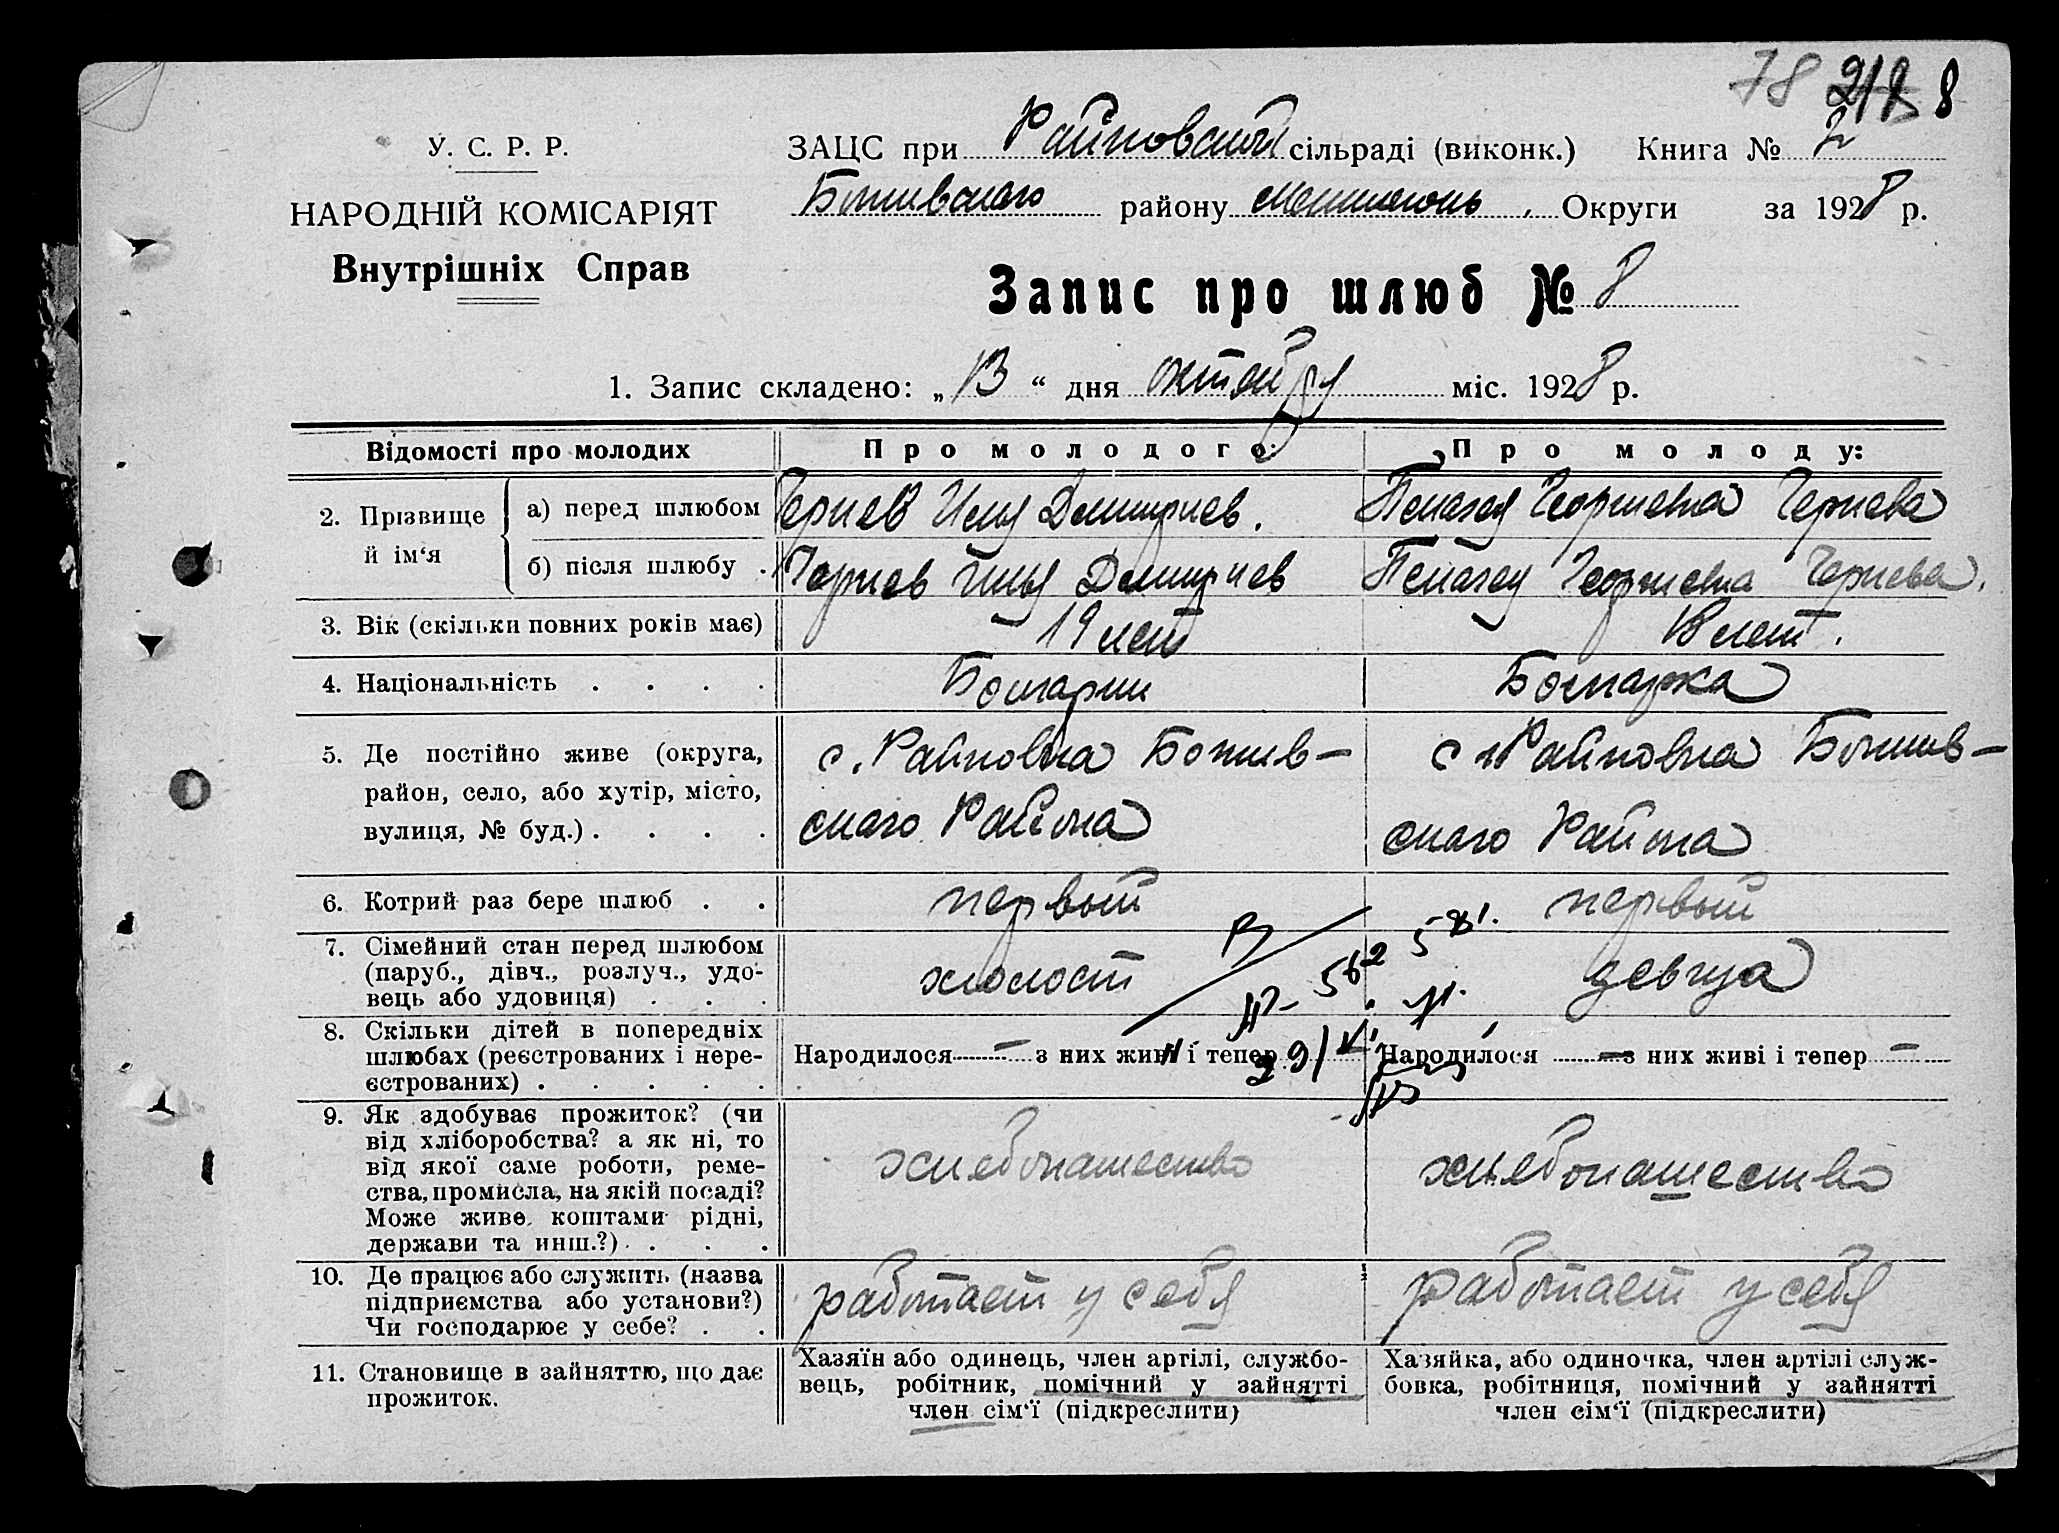 78 218 8
У. С. Р. Р.
НАРОДНІЙ КОМІСАРІЯТ
Внутрішніх Справ
ЗАЦС при Райновской сільраді (виконк.) Книга № 2
Ботивского району Мелитополь. Округи за 1928 р.
Запис про шлюб № 8
1. Запис складено: „13“ дня октября міс. 1928 р.
Відомості про молодих Про молодого: Про молоду:
2. Прізвище й ім‘я
а) перед шлюбом Чернев Илья Дмитриев. Пелагея Георгиевна Чернева
б) після шлюбу . Чернев Илья Дмитриев Пелагея Георгиевна Чернева.
3. Вік (скільки повних років має) 19 лет 18 лет.
4. Національність . . . . Болгарин Болгарка
5. Де постійно живе (округа,
район, село, або хутір, місто,
вулиця, № буд.) . . . .
с. Райновка Ботив-
ского Района
с Райновка Ботив-
ского Района
6. Котрий раз бере шлюб . . первый первый
7. Сімейний стан перед шлюбом
(паруб., дівч., розлуч., удо-
вець або удовиця) . . .
холост девица
8. Скільки дітей в попередніх
шлюбах (реєстрованих і нере-
єстрованих) . . . . .
Народилося — з них живі і тепер
Народилося — з них живі і тепер —
9. Як здобуває прожиток? (чи
від хліборобства? а як ні, то
від якої саме роботи, реме-
ства, промисла, на якій посаді?
Може живе коштами рідні,
держави та инш.?) . . .
хлебопашество хлебопашество
10. Де працює або служить (назва
підприємства або установи?)
Чи господарює у себе? . .
работает у себя работает у себя
11. Становище в зайняттю, що дає
прожиток.
Хазяїн або одинець, член артілі, службо-
вець, робітник, помічний у зайнятті
член сім‘ї (підкреслити)
Хазяйка, або одиночка, член артілі служ-
бовка, робітниця, помічний у зайнятті
член сім‘ї (підкреслити)